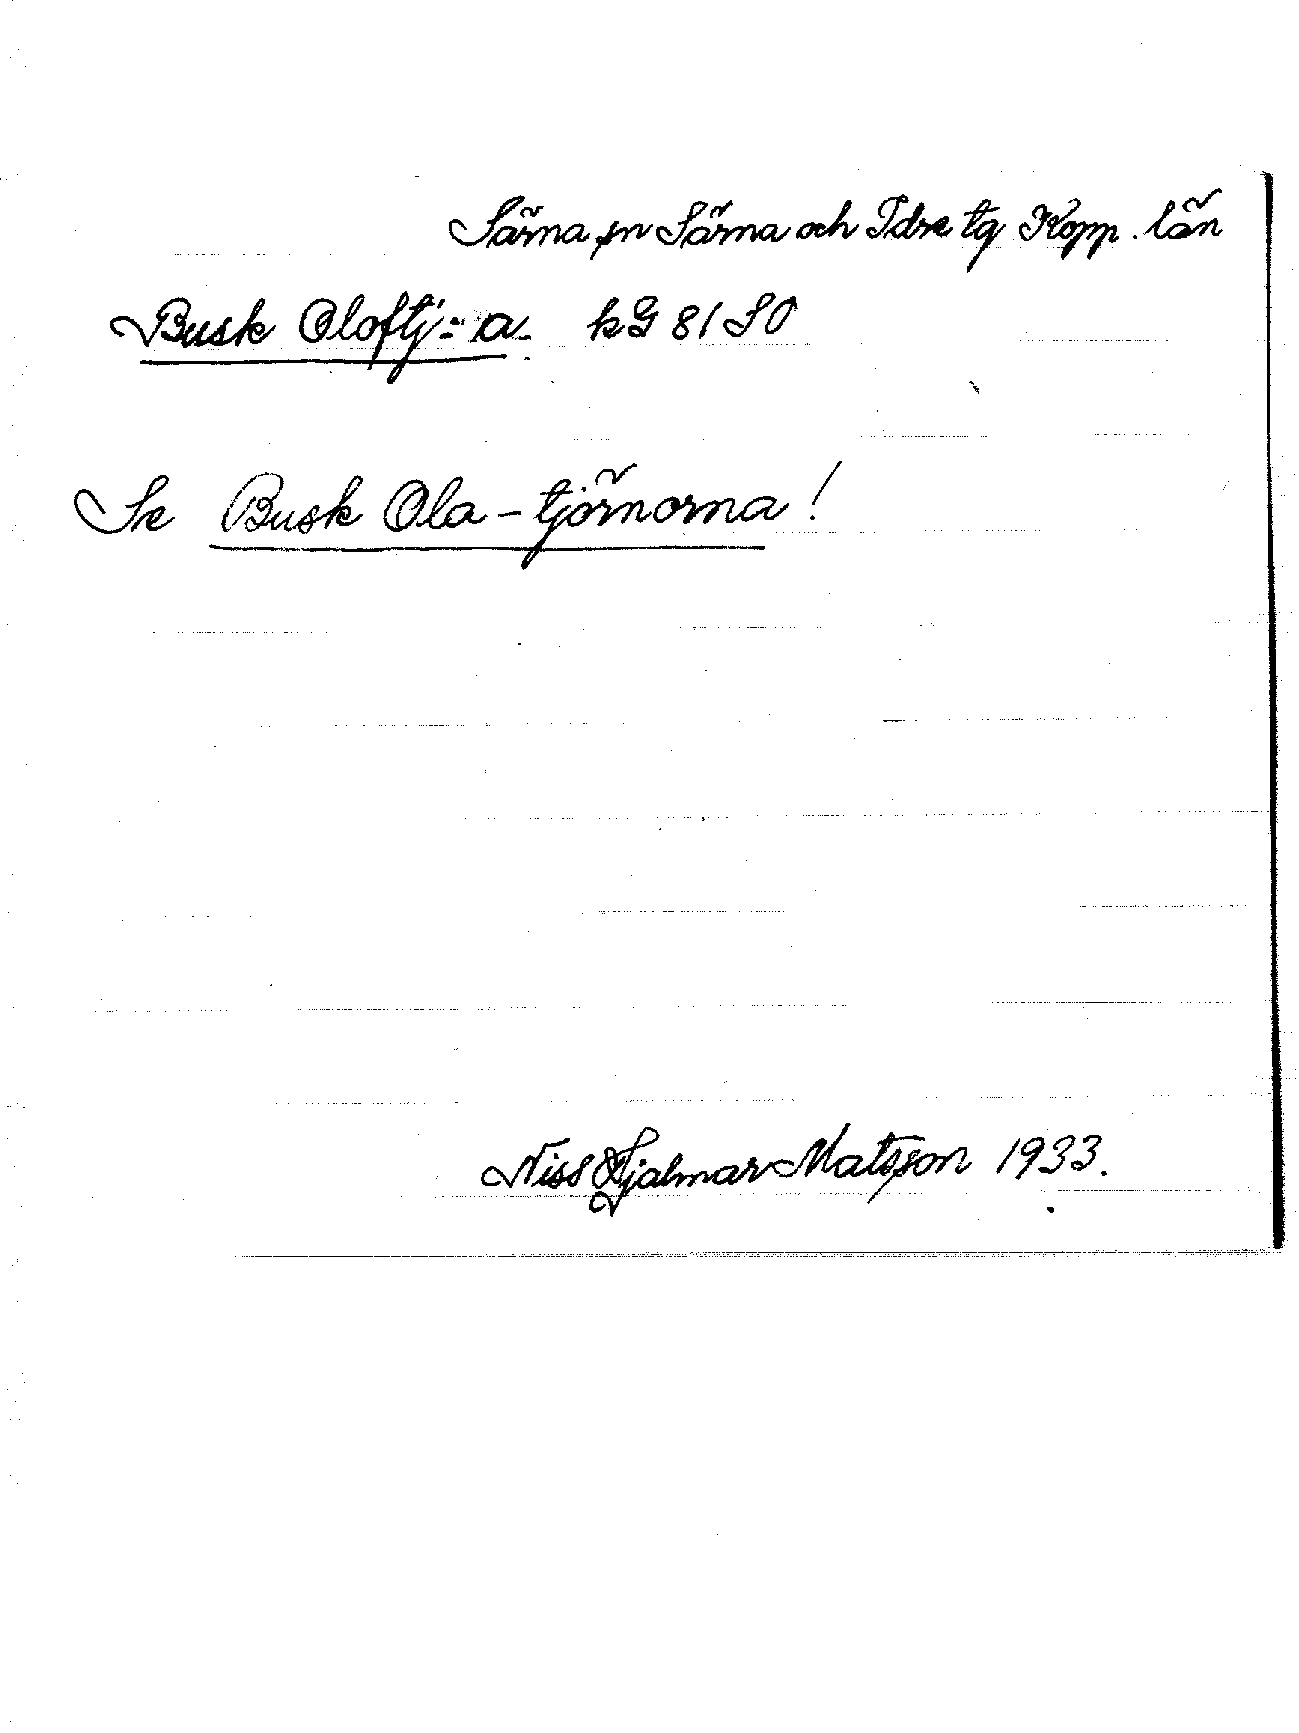 Särna sn Särna och Idre tg Kopp. län
Busk Oloftj:a. kG 81 SO
Se Busk Ola-tjörnorna!
Niss Hjalmar Matsson 1933.